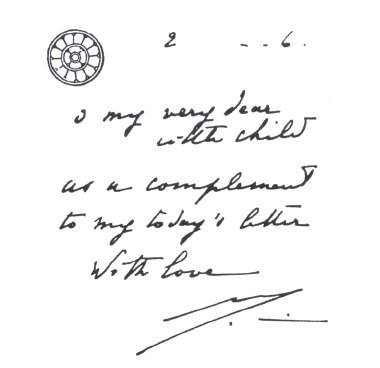 2 - . . 6 .
o my very dear
little child
as a complement
to my today's letter
With love